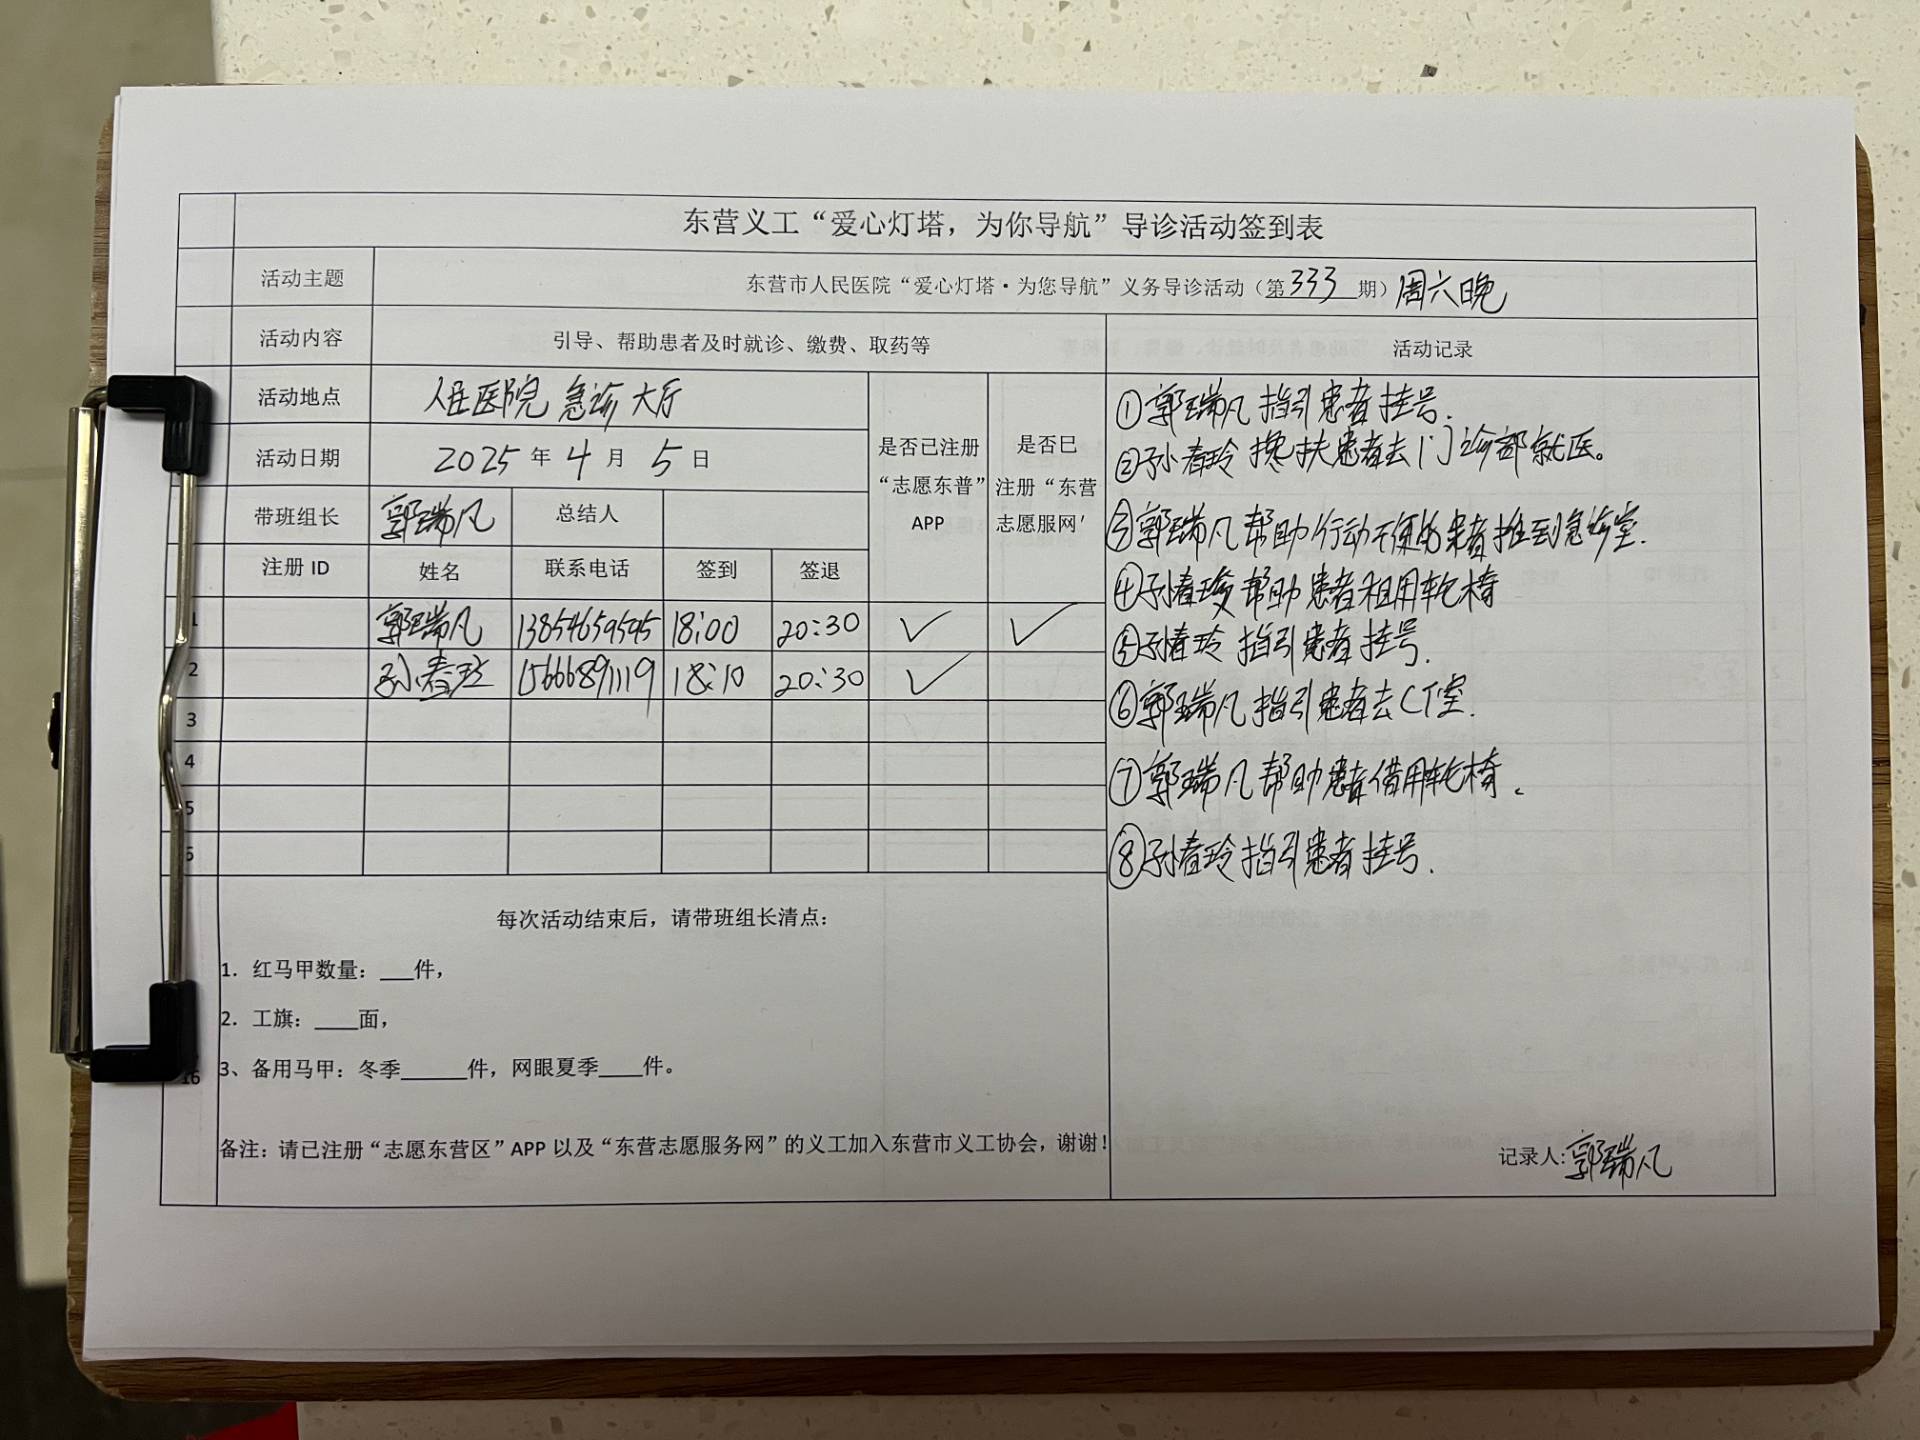 东营义工“爱心灯塔，为你导航”导诊活动签到表
活动主题 东营市人民医院“爱心灯塔·为您导航”义务导诊活动（第333期）周六晚
活动内容 引导、帮助患者及时就诊、缴费、取药等 活动记录
活动地点 人民医院急诊大厅
活动日期 2025年4月5日
是否已注册“志愿东普”APP
是否已注册“东营志愿服网'
带班组长 郭瑞凡 总结人
注册ID 姓名 联系电话 签到 签退
1 郭瑞凡 13854659595 18:00 20:30 ✓ ✓
2 孙春玲 15666891119 18:10 20:30 ✓
3
4
5
6
①郭瑞凡指引患者挂号.
②孙春玲搀扶患者去门诊部就医。
③郭瑞凡帮助行动不便的患者推到急诊室.
④孙春玲帮助患者租用轮椅
⑤孙春玲指引患者挂号.
⑥郭瑞凡指引患者去CT室.
⑦郭瑞凡帮助患者借用轮椅.
⑧孙春玲指引患者挂号.
每次活动结束后，请带班组长清点：
1. 红马甲数量：___件，
2. 工旗：____面，
3、备用马甲：冬季______件，网眼夏季____件。
16
备注：请已注册“志愿东营区”APP以及“东营志愿服务网”的义工加入东营市义工协会，谢谢！
记录人:郭瑞凡